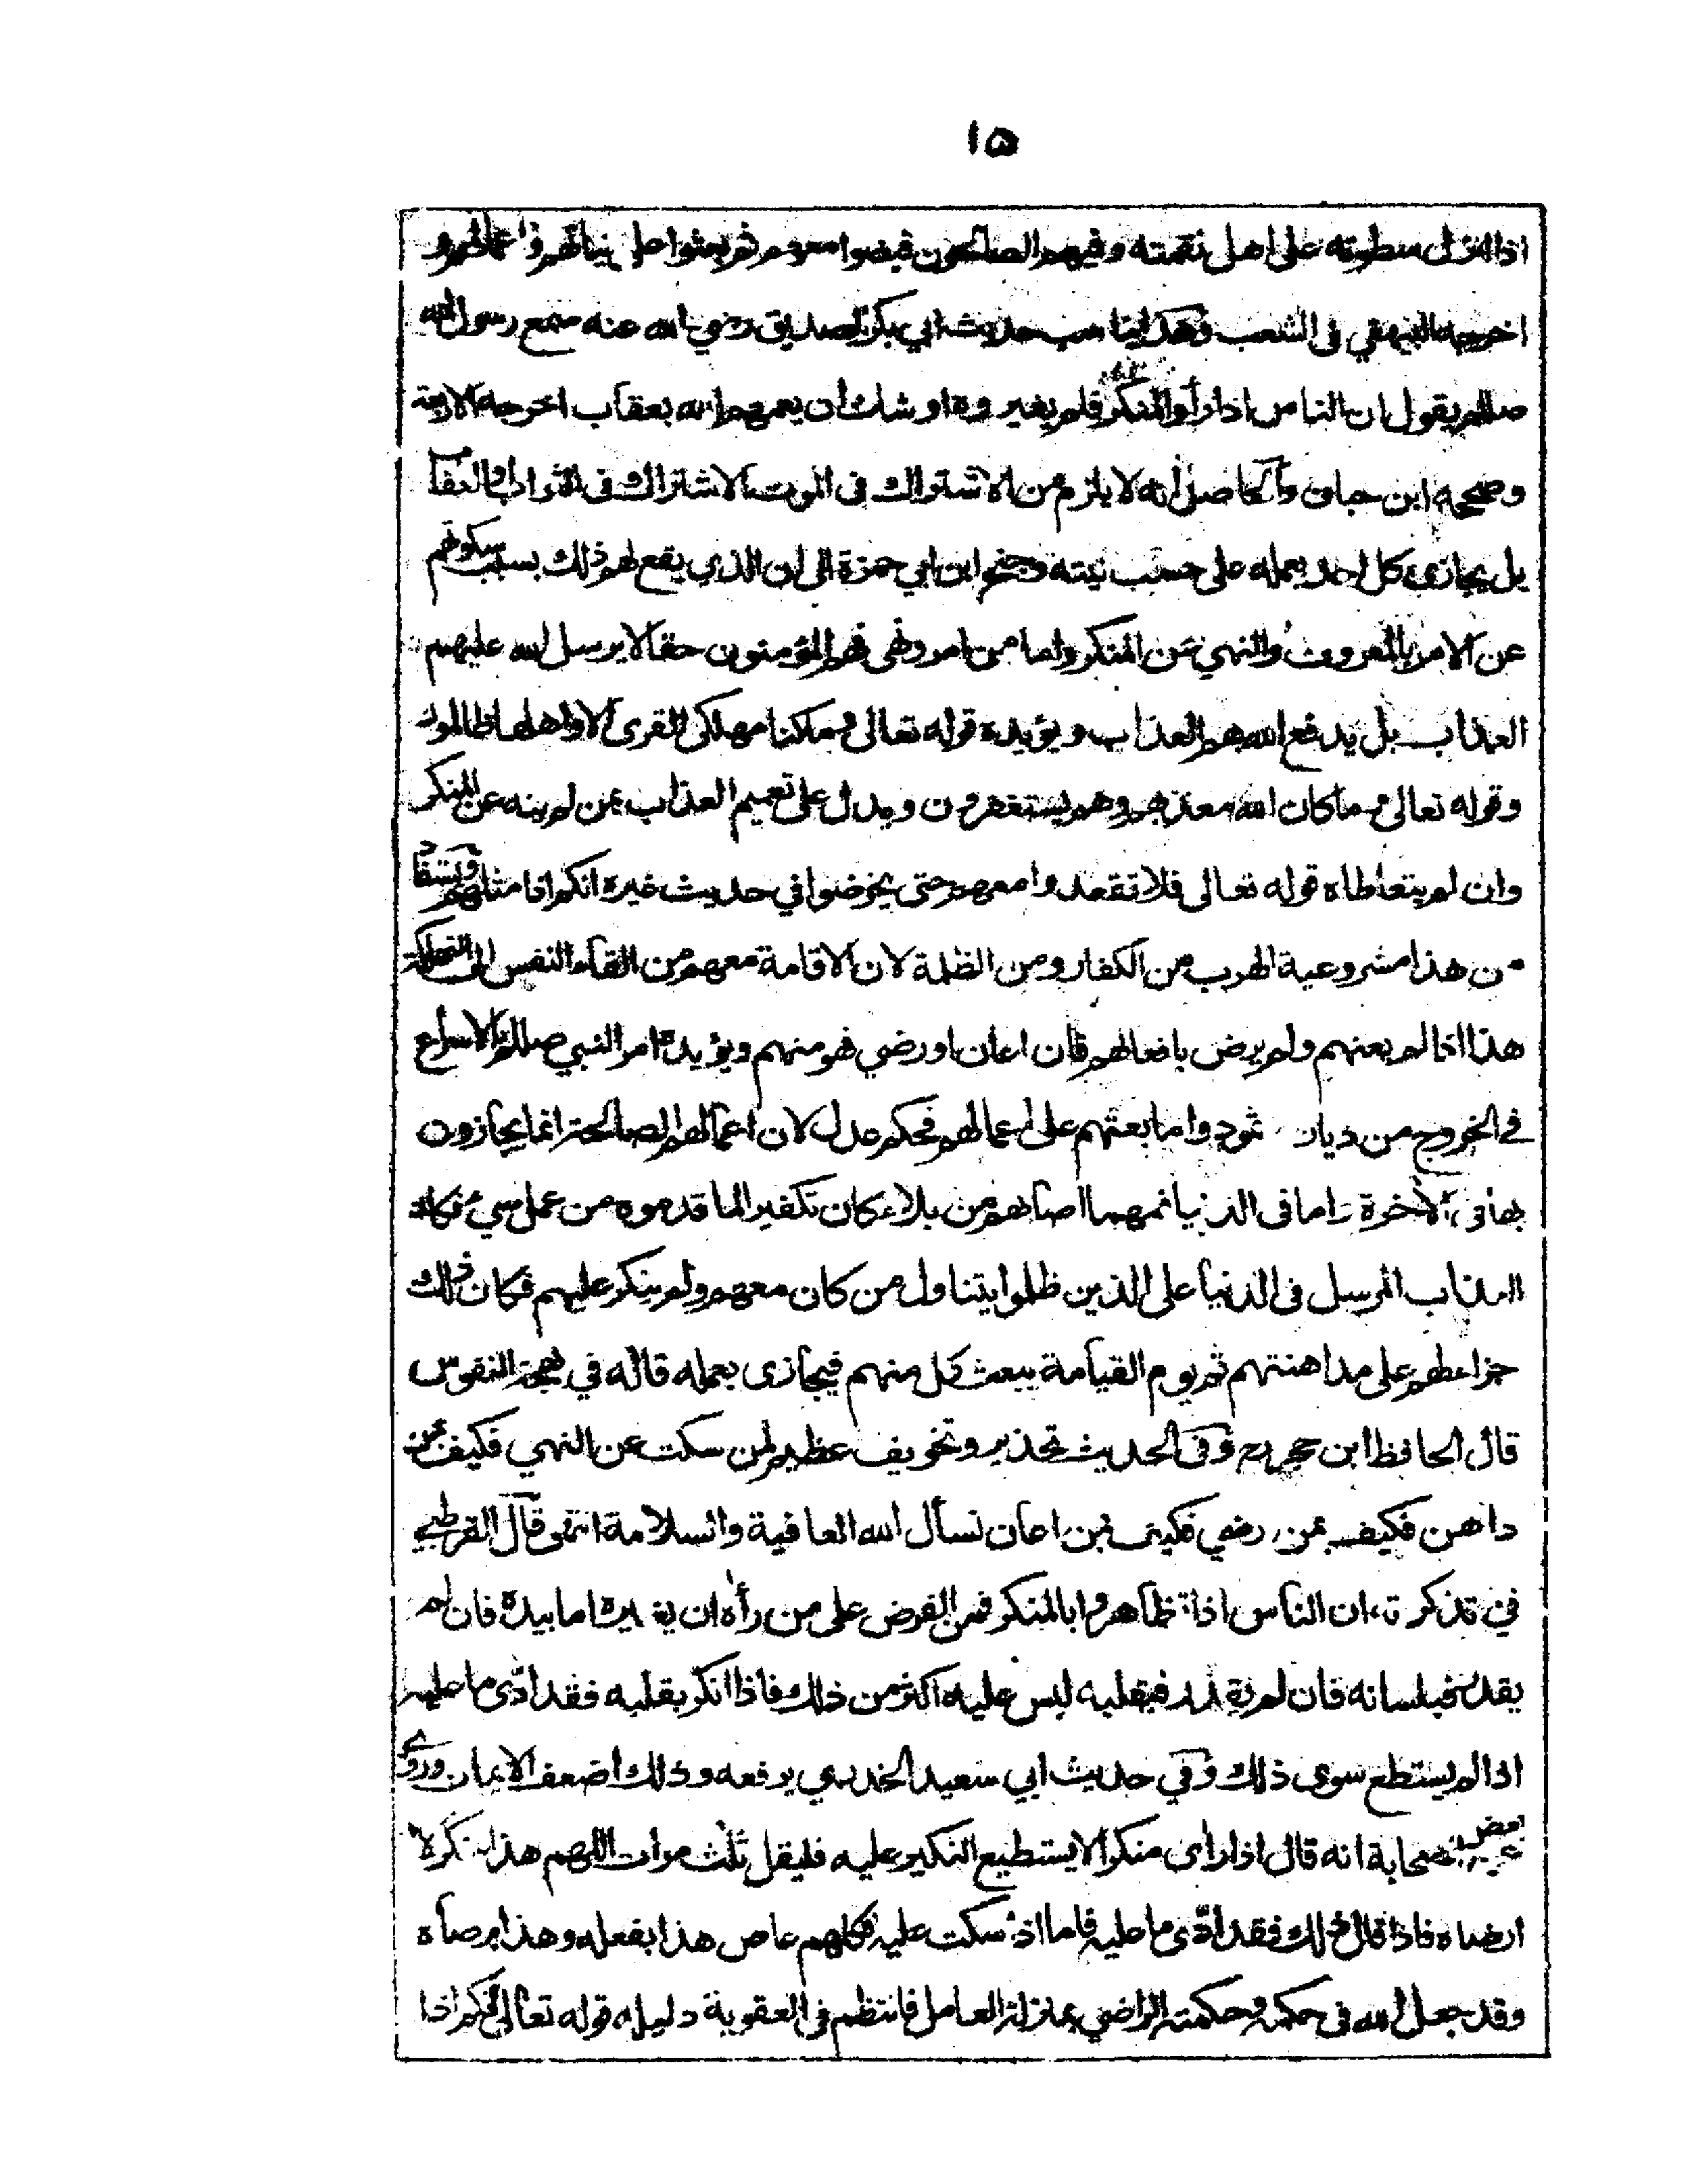 ١٥
اذا انزل سطوته على اهل نقمته وفيهم الصالحون قبضوا معهم ثم بعثوا على نياتهم واعمالهم و
اخرجه البيهقي فى الشعب وهذا يناسب حديث ابي بكر الصديق رضي الله عنه سمع رسول الله
صللم يقول ان الناس اذا رأوا المنكر فلم يغيروه اوشك ان يعمهم الله بعقاب اخرجه الاربعة
وصححه ابن حبان والحاصل أنه لا يلزم من الاشتراك فى الموت الاشتراك فى الثواب والعقاب
بل يجازى كل احد بعمله على حسب نيته وجنح ابن ابي جمرة الى ان الذي يقع لهم ذلك بسبب سكوتهم
عن الامر بالمعروف والنهي عن المنكر واما من امر ونهى فهم المؤمنون حقا لا يرسل الله عليهم
العذاب بل يدفع الله بهم العذاب ويؤيده قوله تعالى وما كنا مهلكى القرى الا واهلها ظالمون
وقوله تعالى وما كان الله معذبهم وهم يستغفرون ويدل على تعميم العذاب بمن لم ينه عن المنكر
وان لم يتعاطاه قوله تعالى فلا تقعدوا معهم حتى يخوضوا في حديث غيره انكم اذا مثلهم ويستفاد
من هذا مشروعية الهرب من الكفار ومن الظلمة لان الاقامة معهم من القاء النفس الى التهلكة
هذا اذا لم يعنهم ولم يرض بافعالهم فان اعان او رضي فهو منهم ويؤيده امر النبي صللم بالاسراع
في الخروج من ديار ثمود واما بعثهم على اعمالهم فحكم عدل لان اعمالهم الصالحة انما يجازون
بها فى الاخرة واما فى الدنيا فمهما اصابهم من بلاء كان تكفيرا لما قدموه من عمل سيئ فكان
العذاب المرسل فى الدنيا على الذين ظلموا يتناول من كان معهم ولم ينكر عليهم فكان ذلك
جزاء لهم على مداهنتهم ثم يوم القيامة يبعث كل منهم فيجازى بعمله قاله في بهجة النفوس
قال الحافظ ابن حجر رح وفى الحديث تحذير وتخويف عظيم لمن سكت عن النهي فكيف بمن
داهن فكيف بمن رضي فكيف بمن اعان نسأل الله العافية والسلامة انتهى قال القرطبي
في تذكرته ان الناس اذا تظاهروا بالمنكر فمن الفرض على من رأه ان يغيره اما بيده فان لم
يقدر فبلسانه فان لم يقدر فبقلبه ليس عليه اكثر من ذلك فاذا انكر بقلبه فقد ادّى ما عليه
اذا لم يستطع سوى ذلك وفي حديث ابي سعيد الخدري يرفعه وذلك اضعف الايمان وروى
بعض الصحابة انه قال اذا راى منكرا لا يستطيع النكير عليه فليقل ثلث مرات اللهم هذا منكر لا
ارضاه فاذا قال ذلك فقد ادّى ما عليه فاما اذا سكت عليه فكلهم عاص هذا بفعله وهذا برضاه
وقد جعل الله فى حكمه وحكمته الراضي بمنزلة العامل فانتظم فى العقوبة دليله قوله تعالى انكم اذا